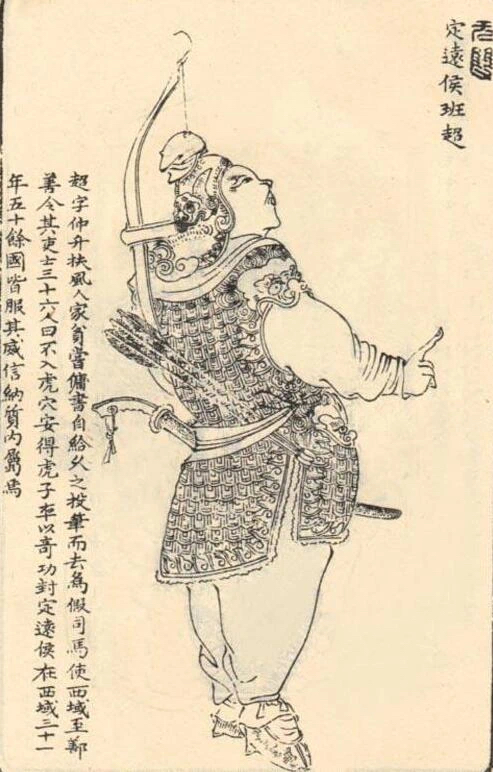 无雙
定遠侯班超
超字仲升扶風人家貧嘗傭書自給久之投筆而去為假司馬使西域至鄯
善令其吏士三十六人曰不入虎穴安得虎子卒以奇功封定遠侯在西域三十一
年五十餘國皆服其威信納質內屬焉